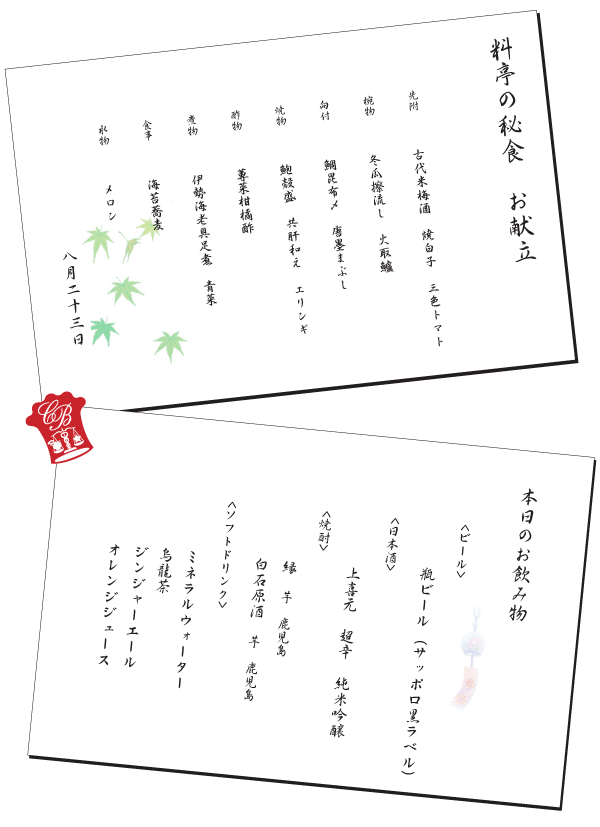 料亭の秘食　お献立
先附
古代米梅酒　焼白子　三色トマト
椀物
冬瓜擦流し　火取鱸
向付
鯛昆布〆　唐墨まぶし
焼物
鮑殻盛　共肝和え　エリンギ
酢物
蓴菜柑橘酢
煮物
伊勢海老具足煮　青菜
食事
海苔蕎麦
水物
メロン
八月二十三日
CB
本日のお飲み物
<ビール>
瓶ビール（サッポロ黒ラベル）
<日本酒>
上喜元　超辛　純米吟醸
<焼酎>
縁　芋　鹿児島
白石原酒　芋　鹿児島
<ソフトドリンク>
ミネラルウォーター
烏龍茶
ジンジャーエール
オレンジジュース